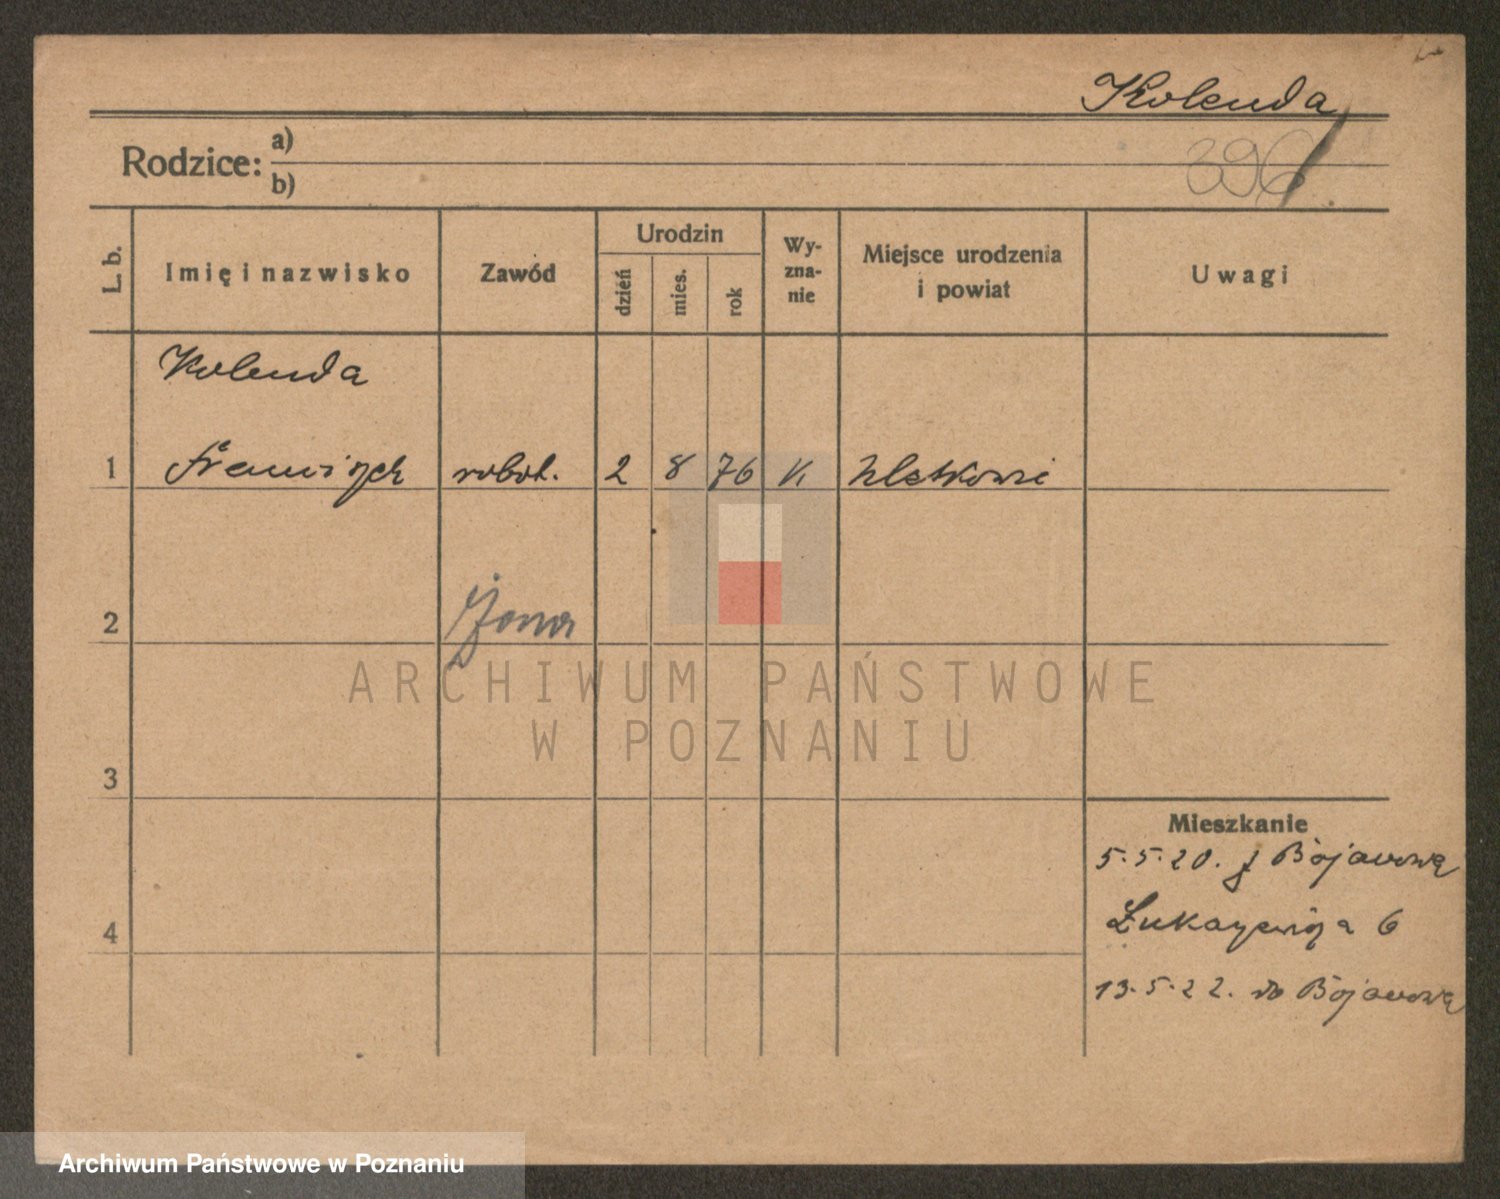 Kolenda
396
Rodzice: a)
b)
L. b.
Imię i nazwisko
Zawód
Urodzin
dzień
mies.
rok
Wy-
zna-
nie
Miejsce urodzenia
i powiat
Uwagi
Kolenda
1 Franciszek robot. 2 8 76 k
2
ARCHIWUM PAŃSTWOWE
W POZNANIU
3
Mieszkanie
5.5.20. z Bojanową
Łukaszewicza 6
4
13.5.22. do Bojanową
Archiwum Państwowe w Poznaniu